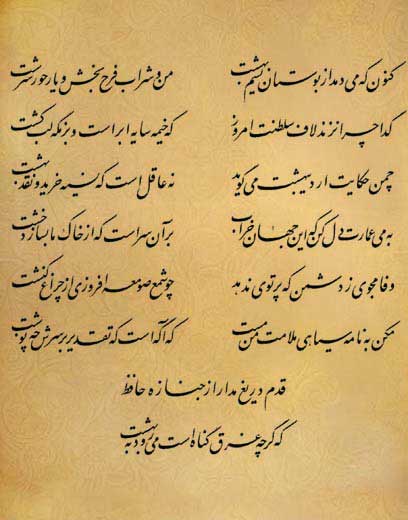 کنون که می دمد از بوستان نسیم بهشت من و شراب فرح بخش و یار حور سرشت
گدا چرا نزند لاف سلطنت امروز که خیمه سایه ابر است و بزمگه لب کشت
چمن حکایت اردیبهشت می گوید نه عاقل است که نسیه خرید و نقد بهشت
به می عمارت دل کن که این جهان خراب بر آن سر است که از خاک ما بسازد خشت
وفا مجوی ز دشمن که پرتوی ندهد چو شمع صومعه افروزی از چراغ کنشت
مکن به نامه سیاهی ملامت من مست که آگه است که تقدیر بر سرش چه نوشت
قدم دریغ مدار از جنازه حافظ
که گرچه غرق گناه است می رود به بهشت